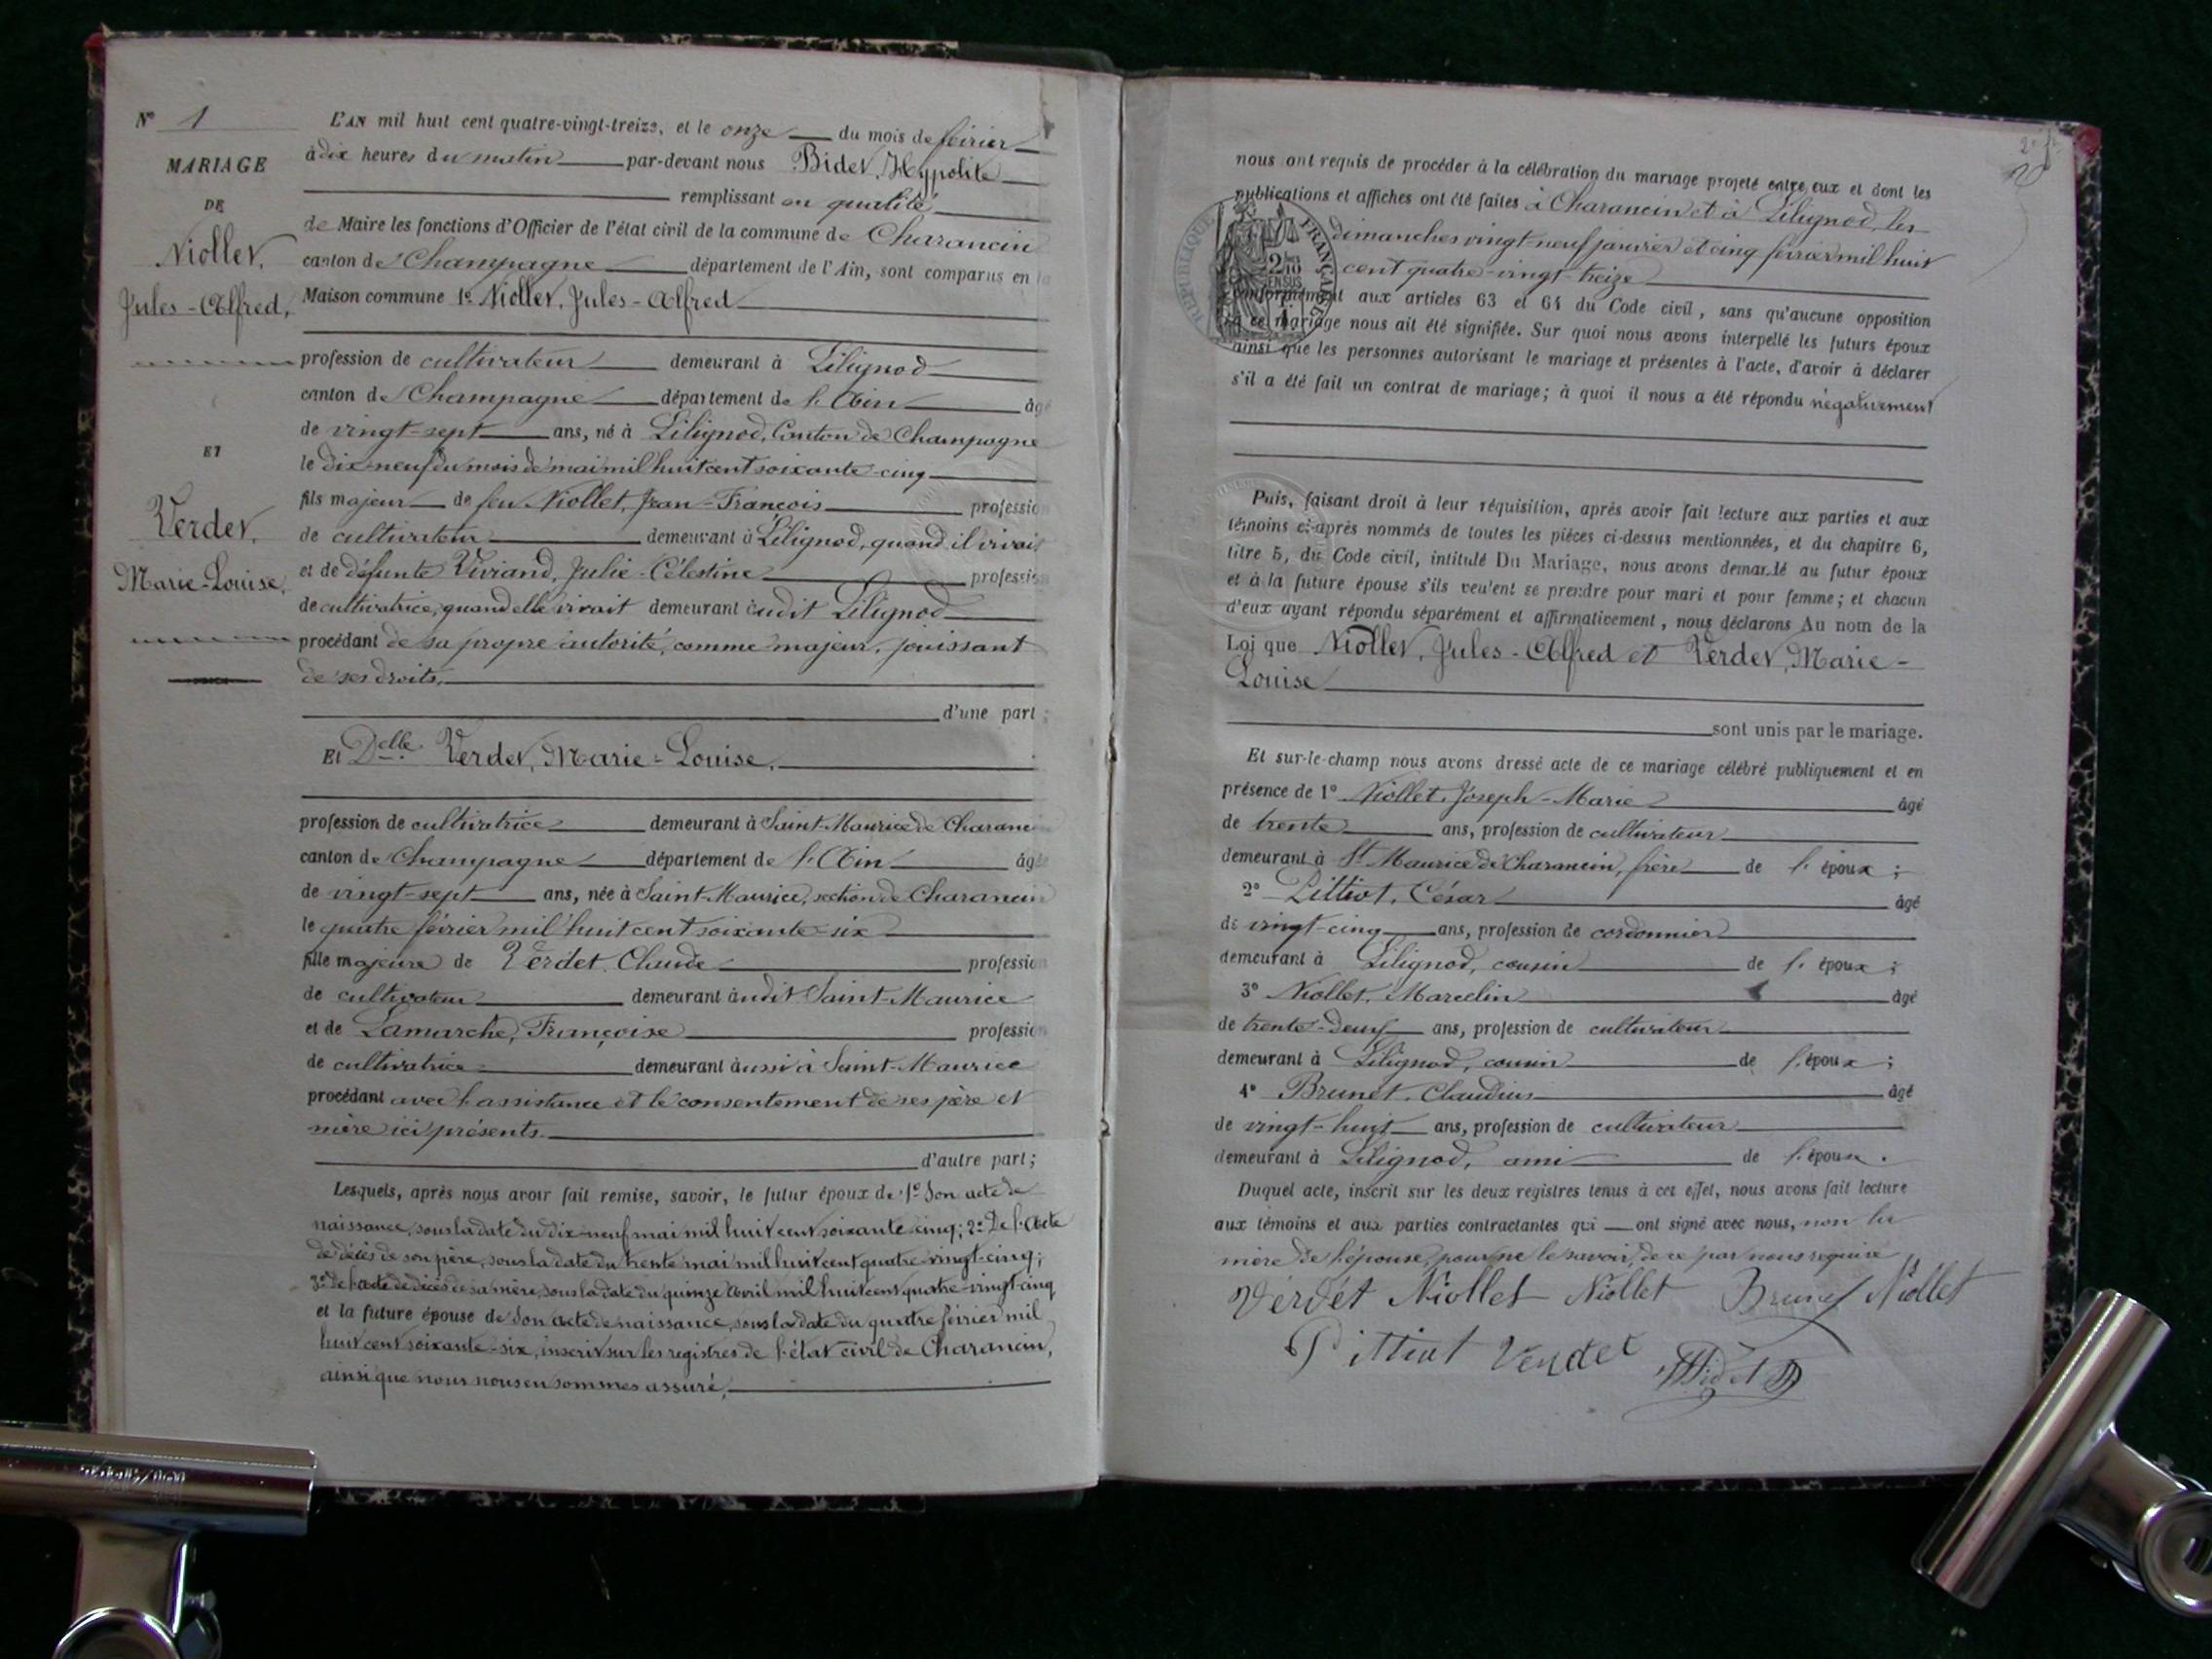 N° 1
MARIAGE
DE
Niollet,
Jules-Alfred,
ET
Verdet,
Marie-Louise,
L'AN mil huit cent quatre-vingt-treize, et le onze du mois de février
à dix heures du matin par-devant nous Bidet, Hypolite
remplissant en qualité
de Maire les fonctions d'Officier de l'état civil de la commune de Charancin
canton de Champagne département de l'Ain, sont comparus en la
Maison commune 1° Niollet, Jules-Alfred
profession de cultivateur demeurant à Lilignod
canton de Champagne département de l'Ain âgé
de vingt-sept ans, né à Lilignod, Canton de Champagne
le dix-neuf du mois de mai mil huit cent soixante-cinq
fils majeur de feu Niollet, Jean-François profession
de cultivateur demeurant à Lilignod, quand il vivait
et de défunte Viviand, Julie-Célestine profession
de cultivatrice, quand elle vivait demeurant audit Lilignod
procédant de sa propre autorité, comme majeur, jouissant
de ses droits,
d'une part ;
Et Delle Verdet, Marie-Louise,
profession de cultivatrice demeurant à Saint-Maurice de Charancin
canton de Champagne département de l'Ain âgée
de vingt-sept ans, née à Saint-Maurice, section de Charancin
le quatre février mil huit cent soixante-six
fille majeure de Verdet, Claude profession
de cultivateur demeurant audit Saint-Maurice
et de Lamarche, Françoise profession
de cultivatrice demeurant aussi à Saint-Maurice
procédant avec l'assistance et le consentement de ses père et
mère ici présents.
d'autre part ;
Lesquels, après nous avoir fait remise, savoir, le futur époux de 1° Son acte de
naissance, sous la date du dix-neuf mai mil huit cent soixante-cinq ; 2° De l'Acte
de décès de son père, sous la date du trente mai mil huit cent quatre-vingt-cinq ;
3° de l'acte de décès de sa mère, sous la date du quinze Avril mil huit cent quatre-vingt-cinq
et la future épouse de Son acte de naissance, sous la date du quatre février mil
huit cent soixante-six, inscrit sur les registres de l'état civil de Charancin,
ainsi que nous nous en sommes assuré,
nous ont requis de procéder à la célébration du mariage projeté entre eux et dont les
publications et affiches ont été faites à Charancin et à Lilignod, les
dimanches vingt-neuf janvier et cinq février mil huit
cent quatre-vingt-treize
RÉPUBLIQUE FRANÇAISE
conformément aux articles 63 et 64 du Code civil, sans qu'aucune opposition
à ce mariage nous ait été signifiée. Sur quoi nous avons interpellé les futurs époux
ainsi que les personnes autorisant le mariage et présentes à l'acte, d'avoir à déclarer
s'il a été fait un contrat de mariage ; à quoi il nous a été répondu négativement
Puis, faisant droit à leur réquisition, après avoir fait lecture aux parties et aux
témoins ci-après nommés de toutes les pièces ci-dessus mentionnées, et du chapitre 6,
titre 5, du Code civil, intitulé Du Mariage, nous avons demandé au futur époux
et à la future épouse s'ils veulent se prendre pour mari et pour femme ; et chacun
d'eux ayant répondu séparément et affirmativement, nous déclarons Au nom de la
Loi que Niollet, Jules-Alfred et Verdet, Marie-
Louise
sont unis par le mariage.
Et sur-le-champ nous avons dressé acte de ce mariage célébré publiquement et en
présence de 1° Niollet, Joseph-Marie âgé
de trente ans, profession de cultivateur
demeurant à St Maurice de Charancin, frère de l'époux ;
2° Littiot, César âgé
de vingt-cinq ans, profession de cordonnier
demeurant à Lilignod, cousin de l'époux ;
3° Niollet, Marcelin âgé
de trente-deux ans, profession de cultivateur
demeurant à Lilignod, cousin de l'époux ;
4° Brunet, Claudius âgé
de vingt-huit ans, profession de cultivateur
demeurant à Lilignod, ami de l'époux.
Duquel acte, inscrit sur les deux registres tenus à cet effet, nous avons fait lecture
aux témoins et aux parties contractantes qui ont signé avec nous, non la
mère de l'épouse, pour ne le savoir, de ce par nous requise
Verdet Niollet Niollet Brunet Niollet
Pittiot Verdet
Bidet